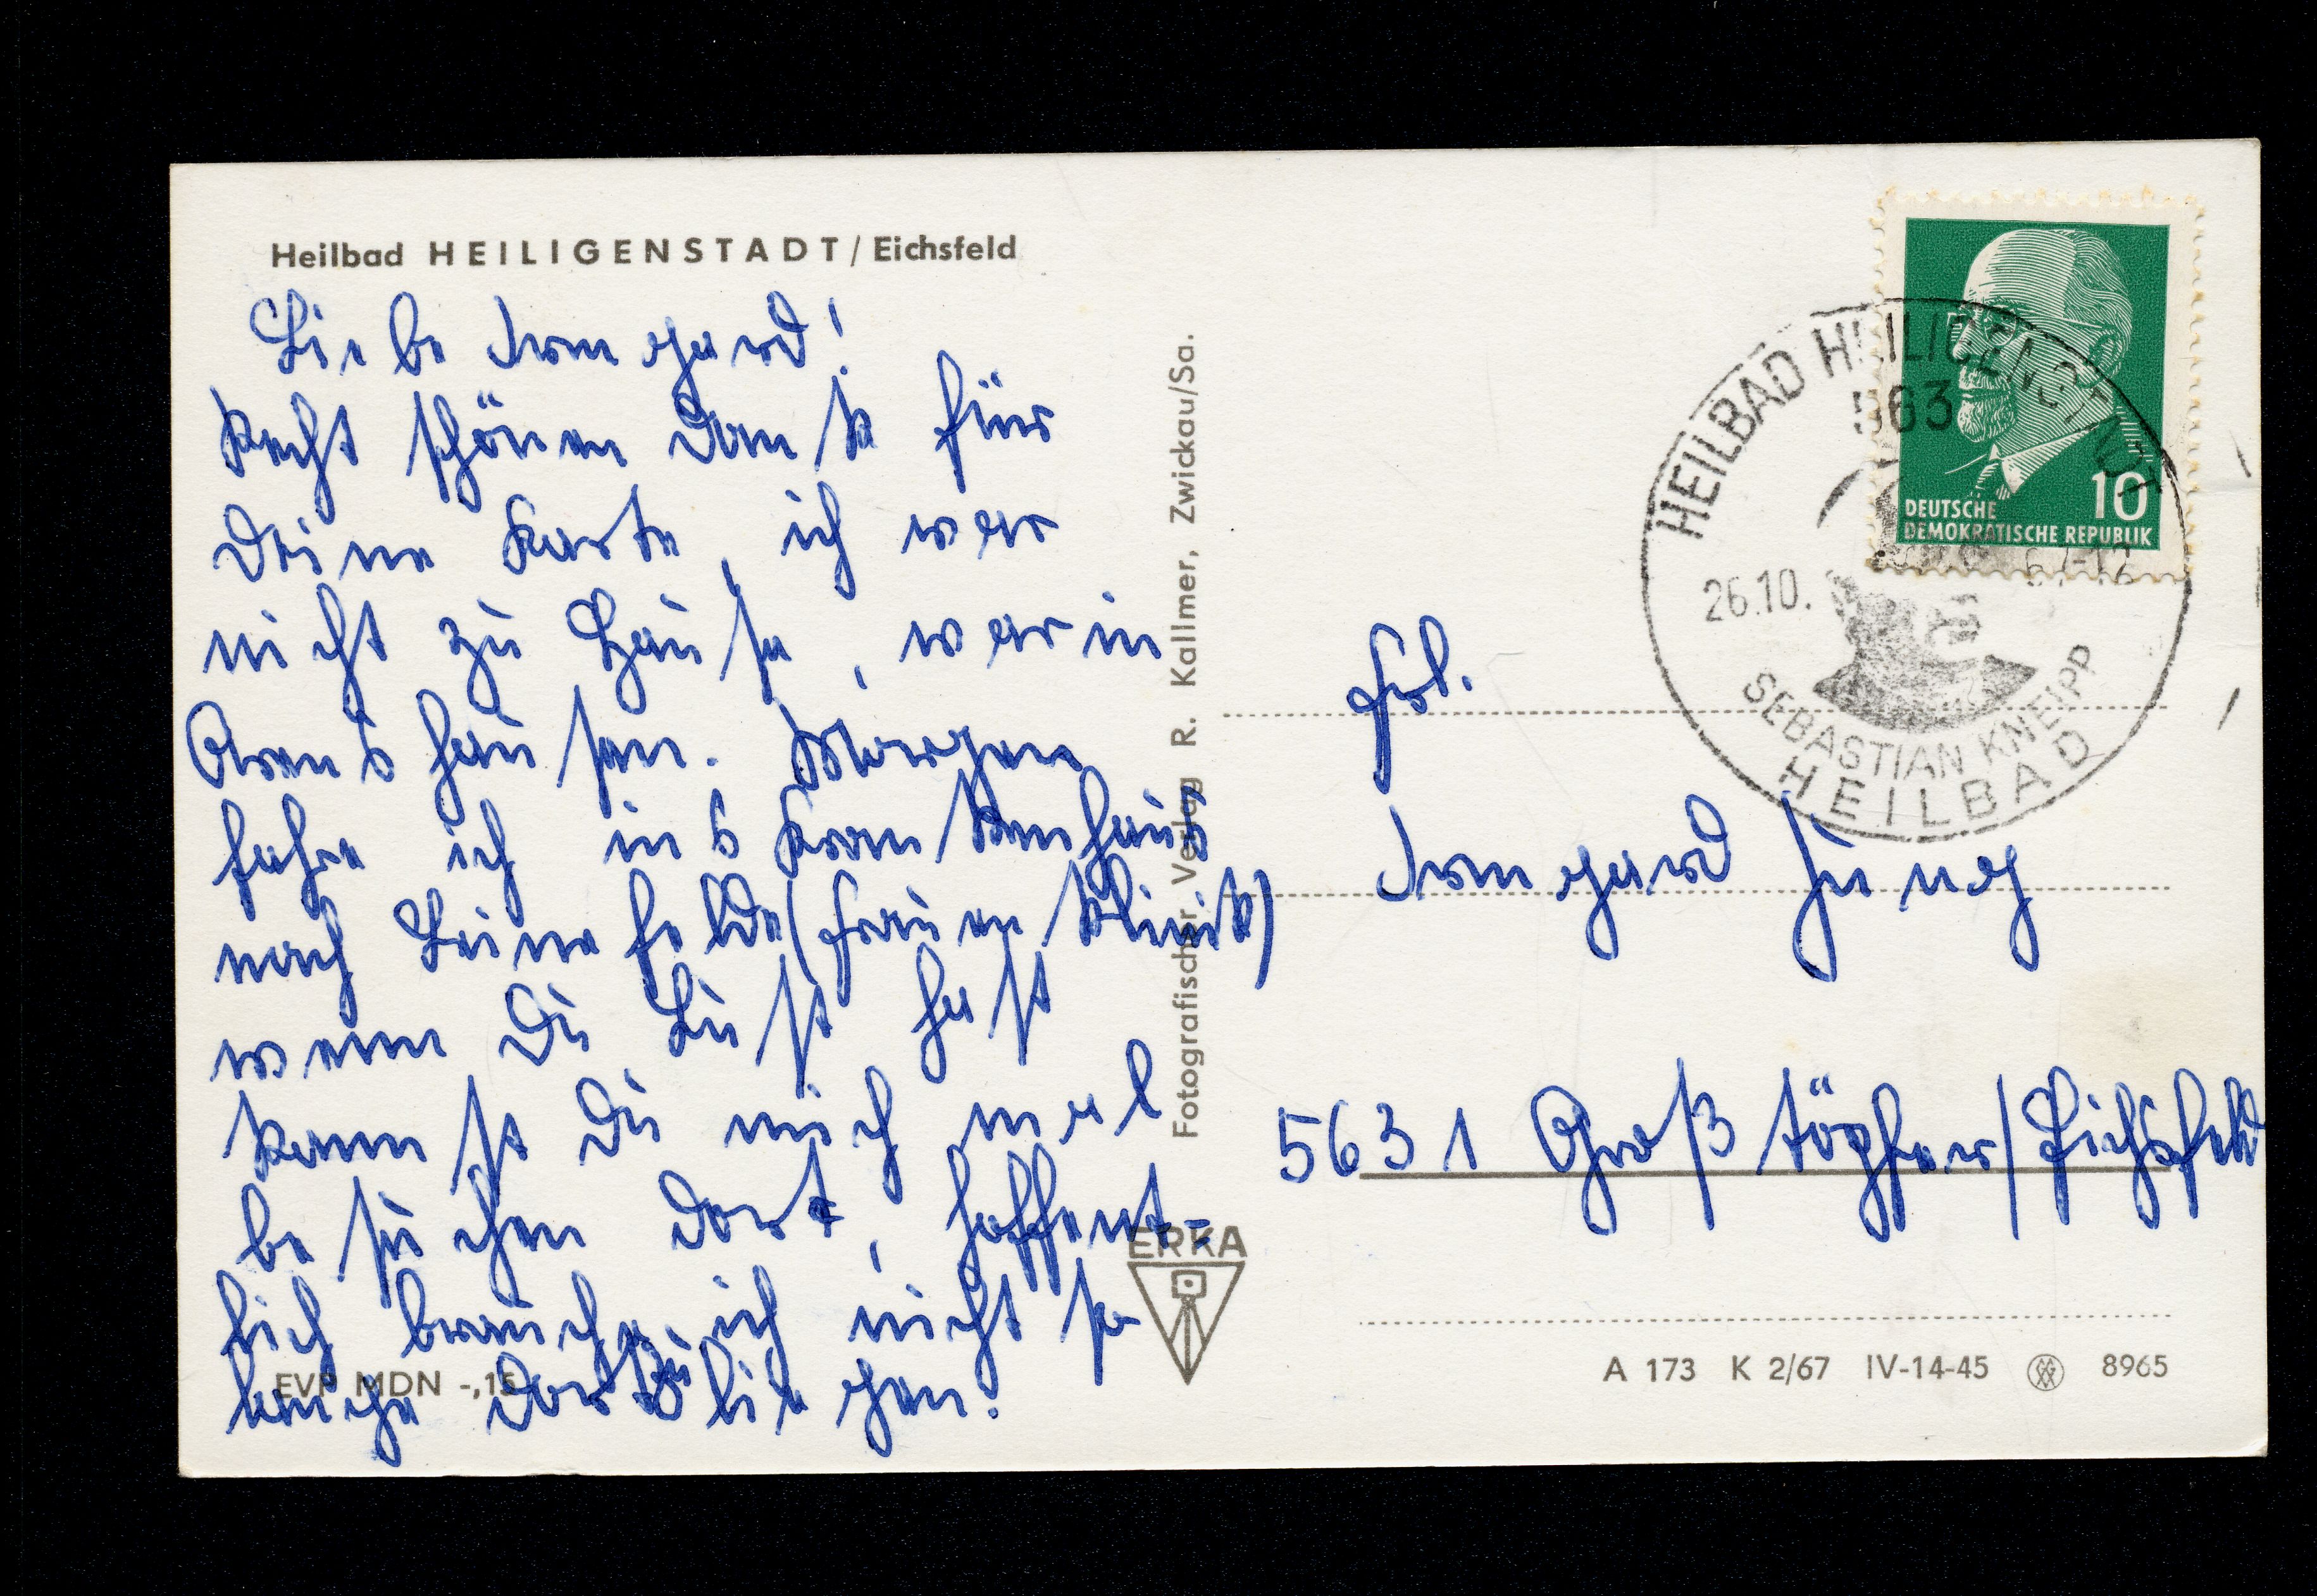 Heilbad HEILIGENSTADT / Eichsfeld
Liebe Irmgard!
Recht schönen Dank für
Deine Karte, ich war
nicht zu Hause, war in
Arenshausen. Morgen
fahre ich ins Krankenhaus
nach Leinefelde (Frauenklinik)
wenn Du Lust hast
kannst Du mich mal
besuchen dort, hoffent-
lich brauche ich nicht so
lange dort zu liegen.
EVP MDN -,15
Fotografischer Verlag R. Kallmer, Zwickau/Sa.
ERKA
DEUTSCHE
DEMOKRATISCHE REPUBLIK
10
HEILBAD HEILIGENSTADT
563
26.10. 67-12
SEBASTIAN KNEIPP
HEILBAD
Frl.
Irmgard Jung
5631 Großtöpfer/Eichsfeld
A 173 K 2/67 IV-14-45 8965